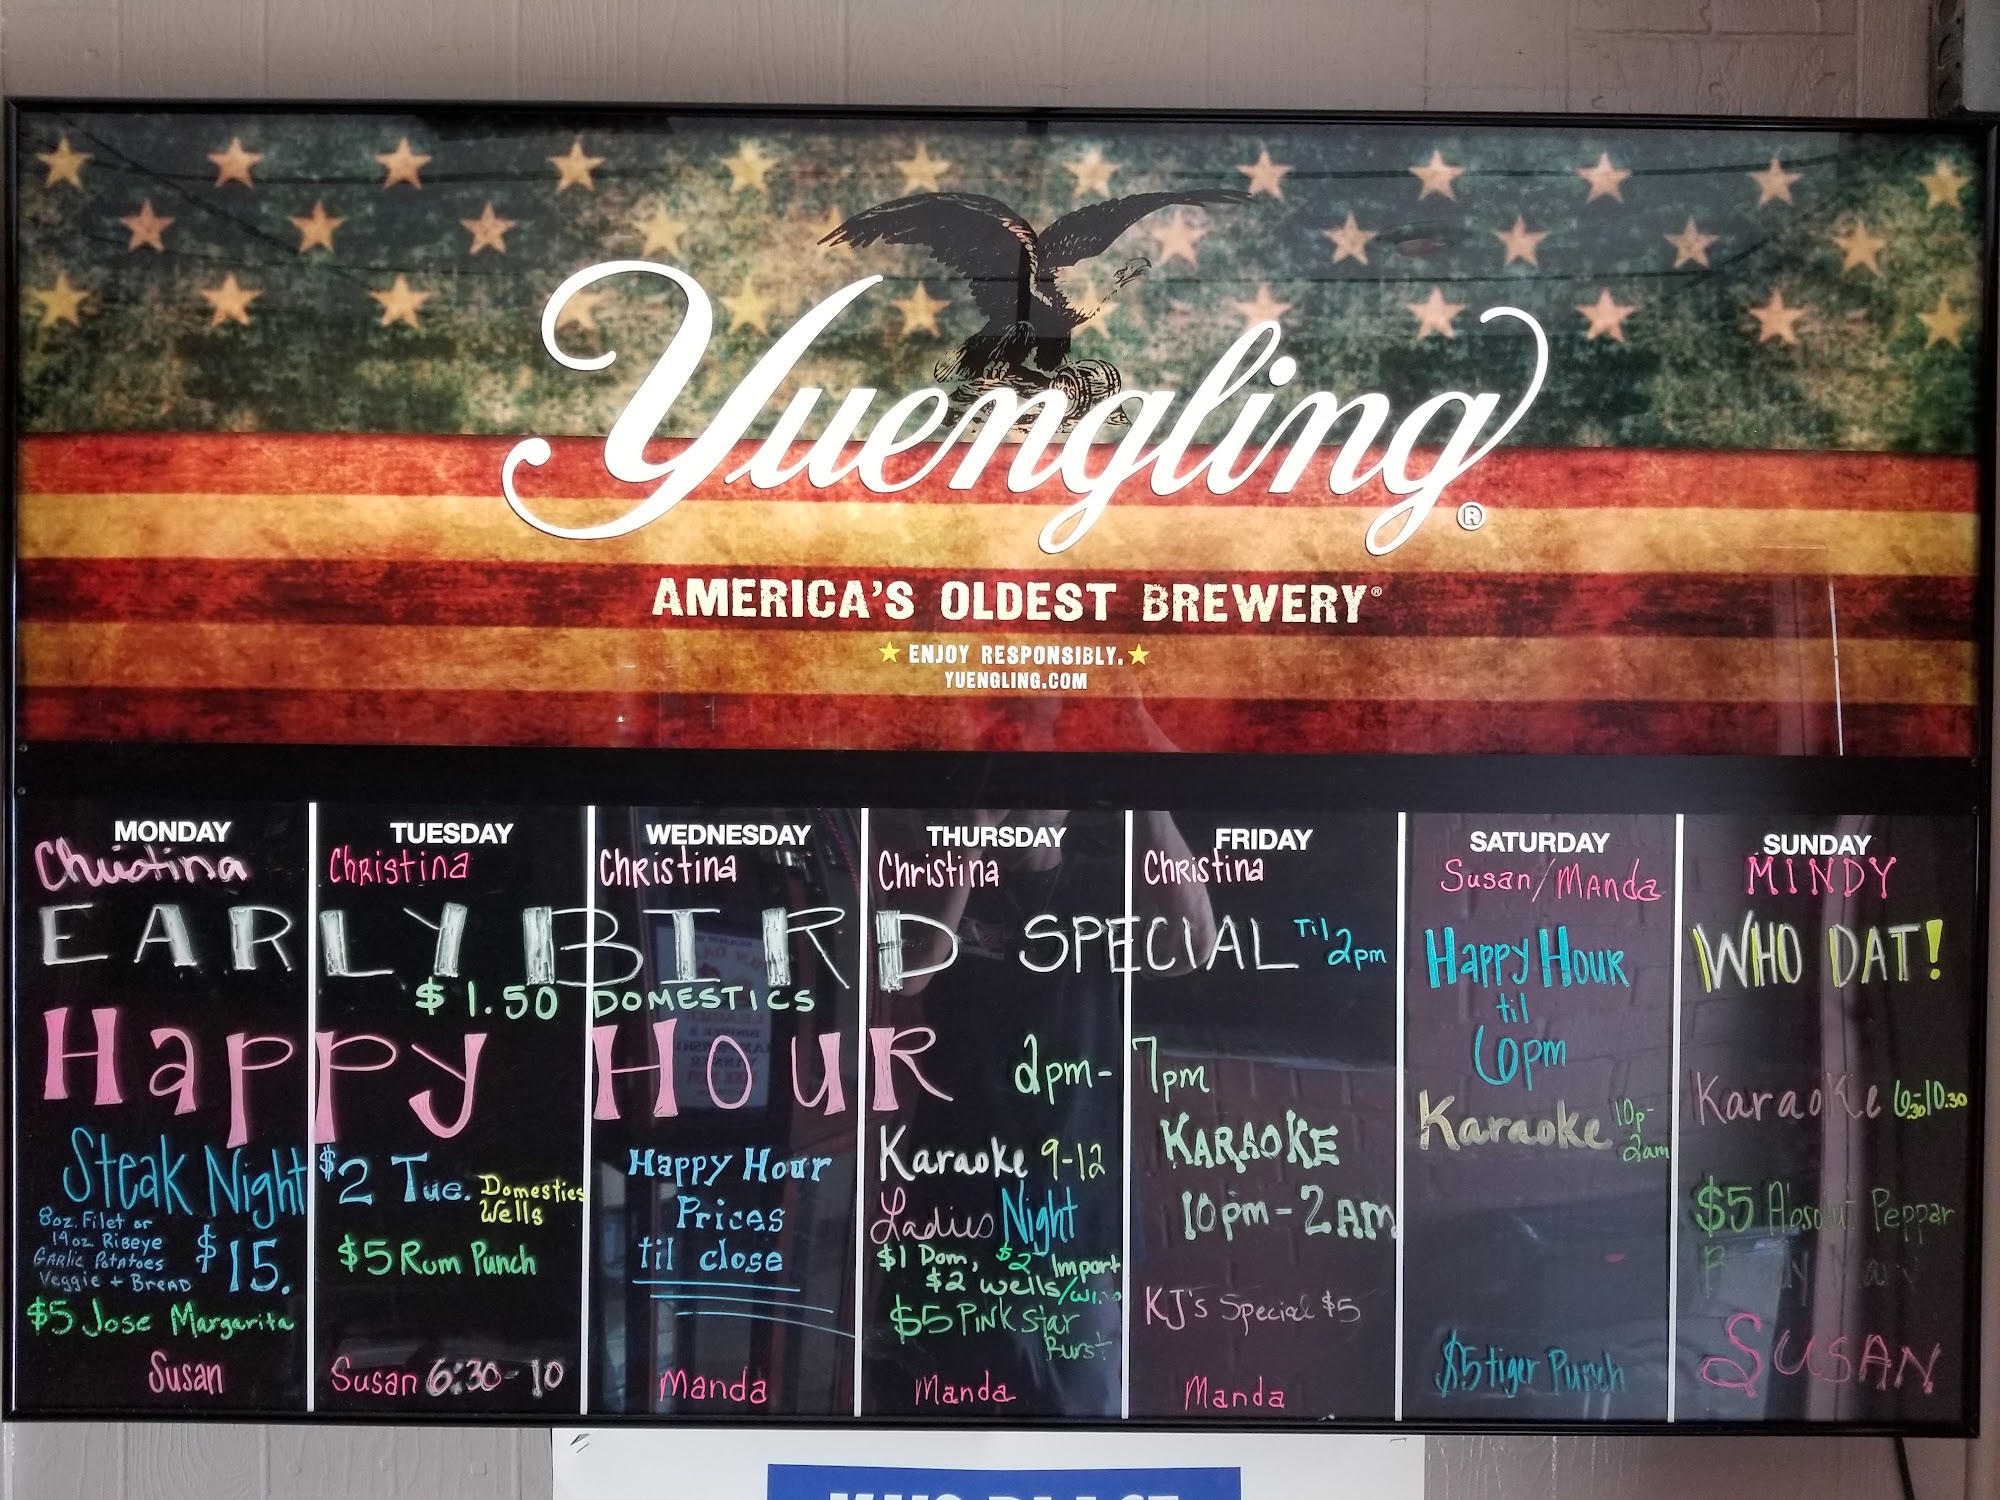 Yuengling®
AMERICA'S OLDEST BREWERY®
ENJOY RESPONSIBLY.
YUENGLING.COM
MONDAY TUESDAY WEDNESDAY THURSDAY FRIDAY SATURDAY SUNDAY
Christina Christina Christina Christina Christina Susan/Manda MINDY
EARLY BIRD SPECIAL Til 2pm
$1.50 DOMESTICS
Happy Hour 2pm-7pm
Steak Night
8oz. Filet or
14oz Ribeye
Garlic Potatoes
Veggie + Bread
$15.
$5 Jose Margarita
Susan
$2 Tue. Domestics
Wells
$5 Rum Punch
Susan 6:30-10
Happy Hour
Prices
til close
Manda
Karaoke 9-12
Ladies Night
$1 Dom, $2 Import
$2 wells/
$5 Pink Star
Burst
Manda
KARAOKE
10pm-2AM
KJ's Special $5
Manda
Happy Hour
til
6pm
Karaoke 10p-
2am
$5 tiger Punch
WHO DAT!
Karaoke 6:30-10:30
$5 Absolut Peppar
SUSAN